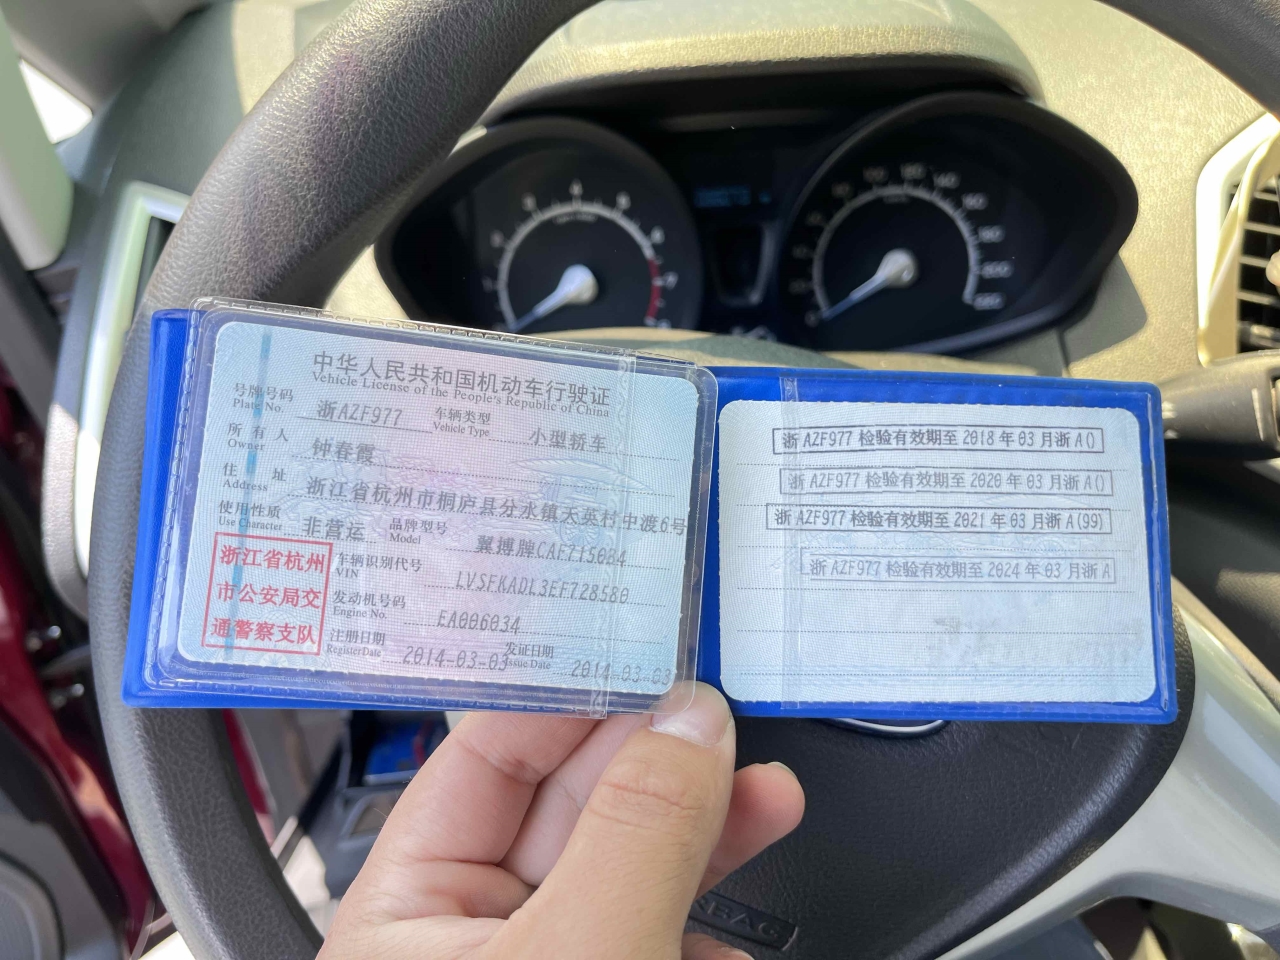 中华人民共和国机动车行驶证
Vehicle License of the People's Republic of China
号牌号码 浙AZF977 车辆类型 小型轿车
Plate No. Vehicle Type
所有人 钟春霞
Owner
住址 浙江省杭州市桐庐县分水镇天英村中渡6号
Address
使用性质 非营运 品牌型号 翼搏牌CAF7150B4
Use Character Model
浙江省杭州
市公安局交
通警察支队
车辆识别代号 LVSFKADL3EF728580
VIN
发动机号码 EA006034
Engine No.
注册日期 2014-03-03 发证日期 2014-03-03
Register Date Issue Date
浙 AZF977 检验有效期至 2018 年 03 月浙 A()
浙 AZF977 检验有效期至 2020 年 03 月浙 A()
浙 AZF977 检验有效期至 2021 年 03 月浙 A(99)
浙 AZF977 检验有效期至 2024 年 03 月浙 A